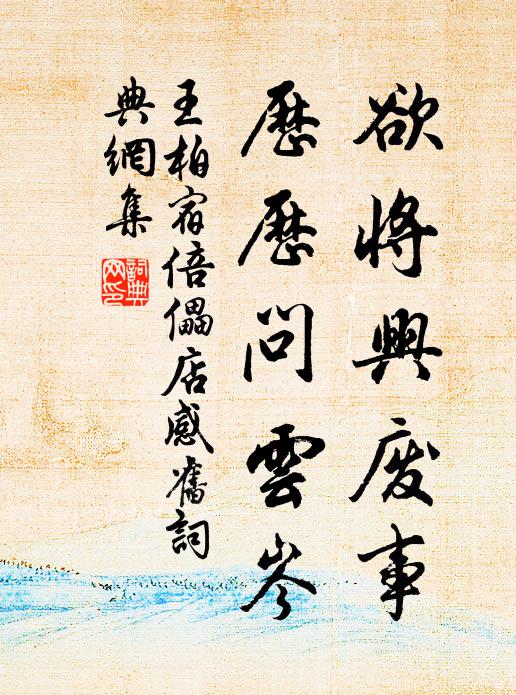 欲將興廢事
歷歷問雲岑
王柏宿倍儡店感舊詞
典網集
詞典
网印